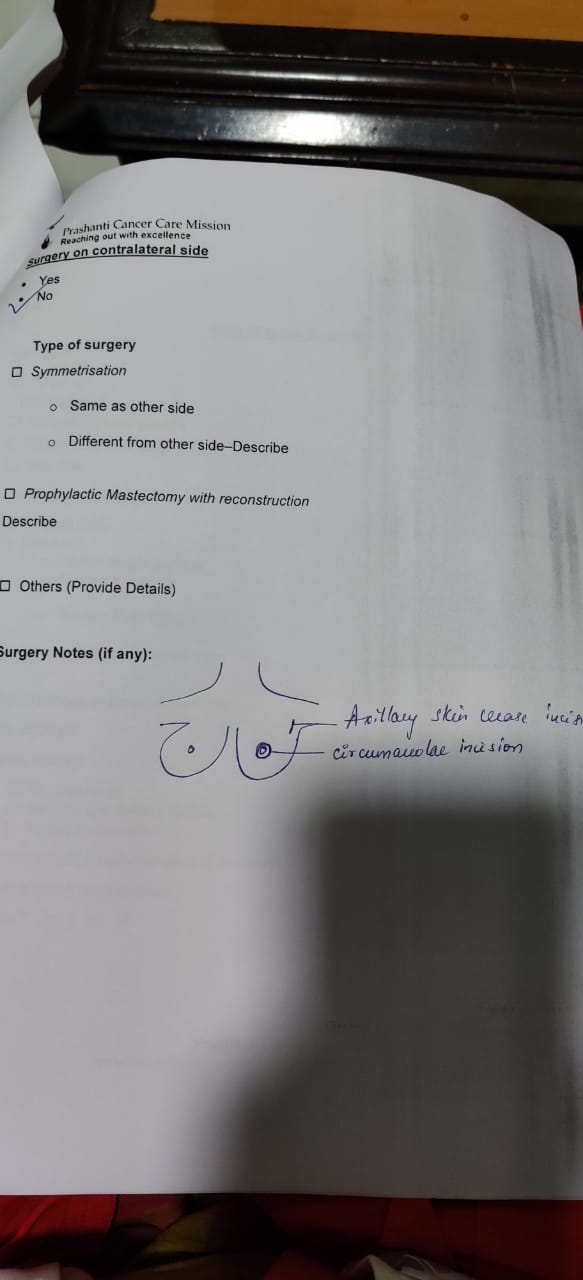 Prashanti Cancer Care Mission
Reaching out with excellence
Surgery on contralateral side
• Yes
• No
Type of surgery
☐ Symmetrisation
○ Same as other side
○ Different from other side–Describe
☐ Prophylactic Mastectomy with reconstruction
Describe
☐ Others (Provide Details)
Surgery Notes (if any):
Axillary skin crease
circumareolae incision